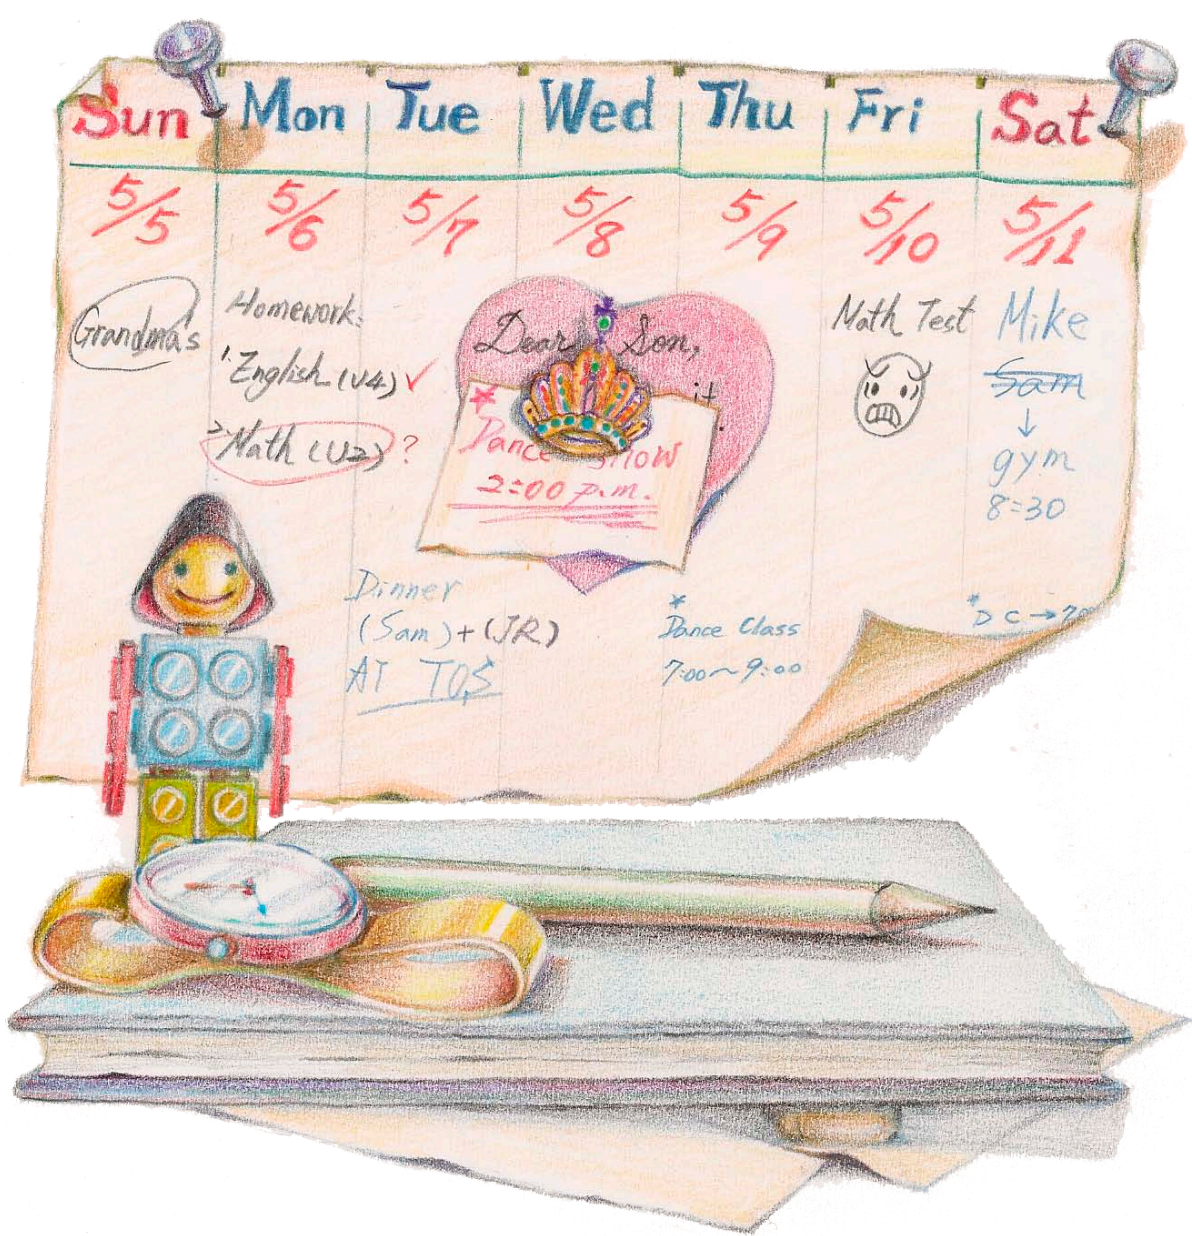 Sun Mon Tue Wed Thu Fri Sat
5/5 5/6 5/7 5/8 5/9 5/10 5/11
Grandma's
Homework:
1. English (U4) ✓
2. Math (U2) ?
Dinner
(Sam) + (JR)
AT TQS
Dear Son,
it
* Dance Show
2:00 p.m.
*
Dance Class
7:00~9:00
Math Test
Mike
Sam
↓
gym
8:30
* D C → 7